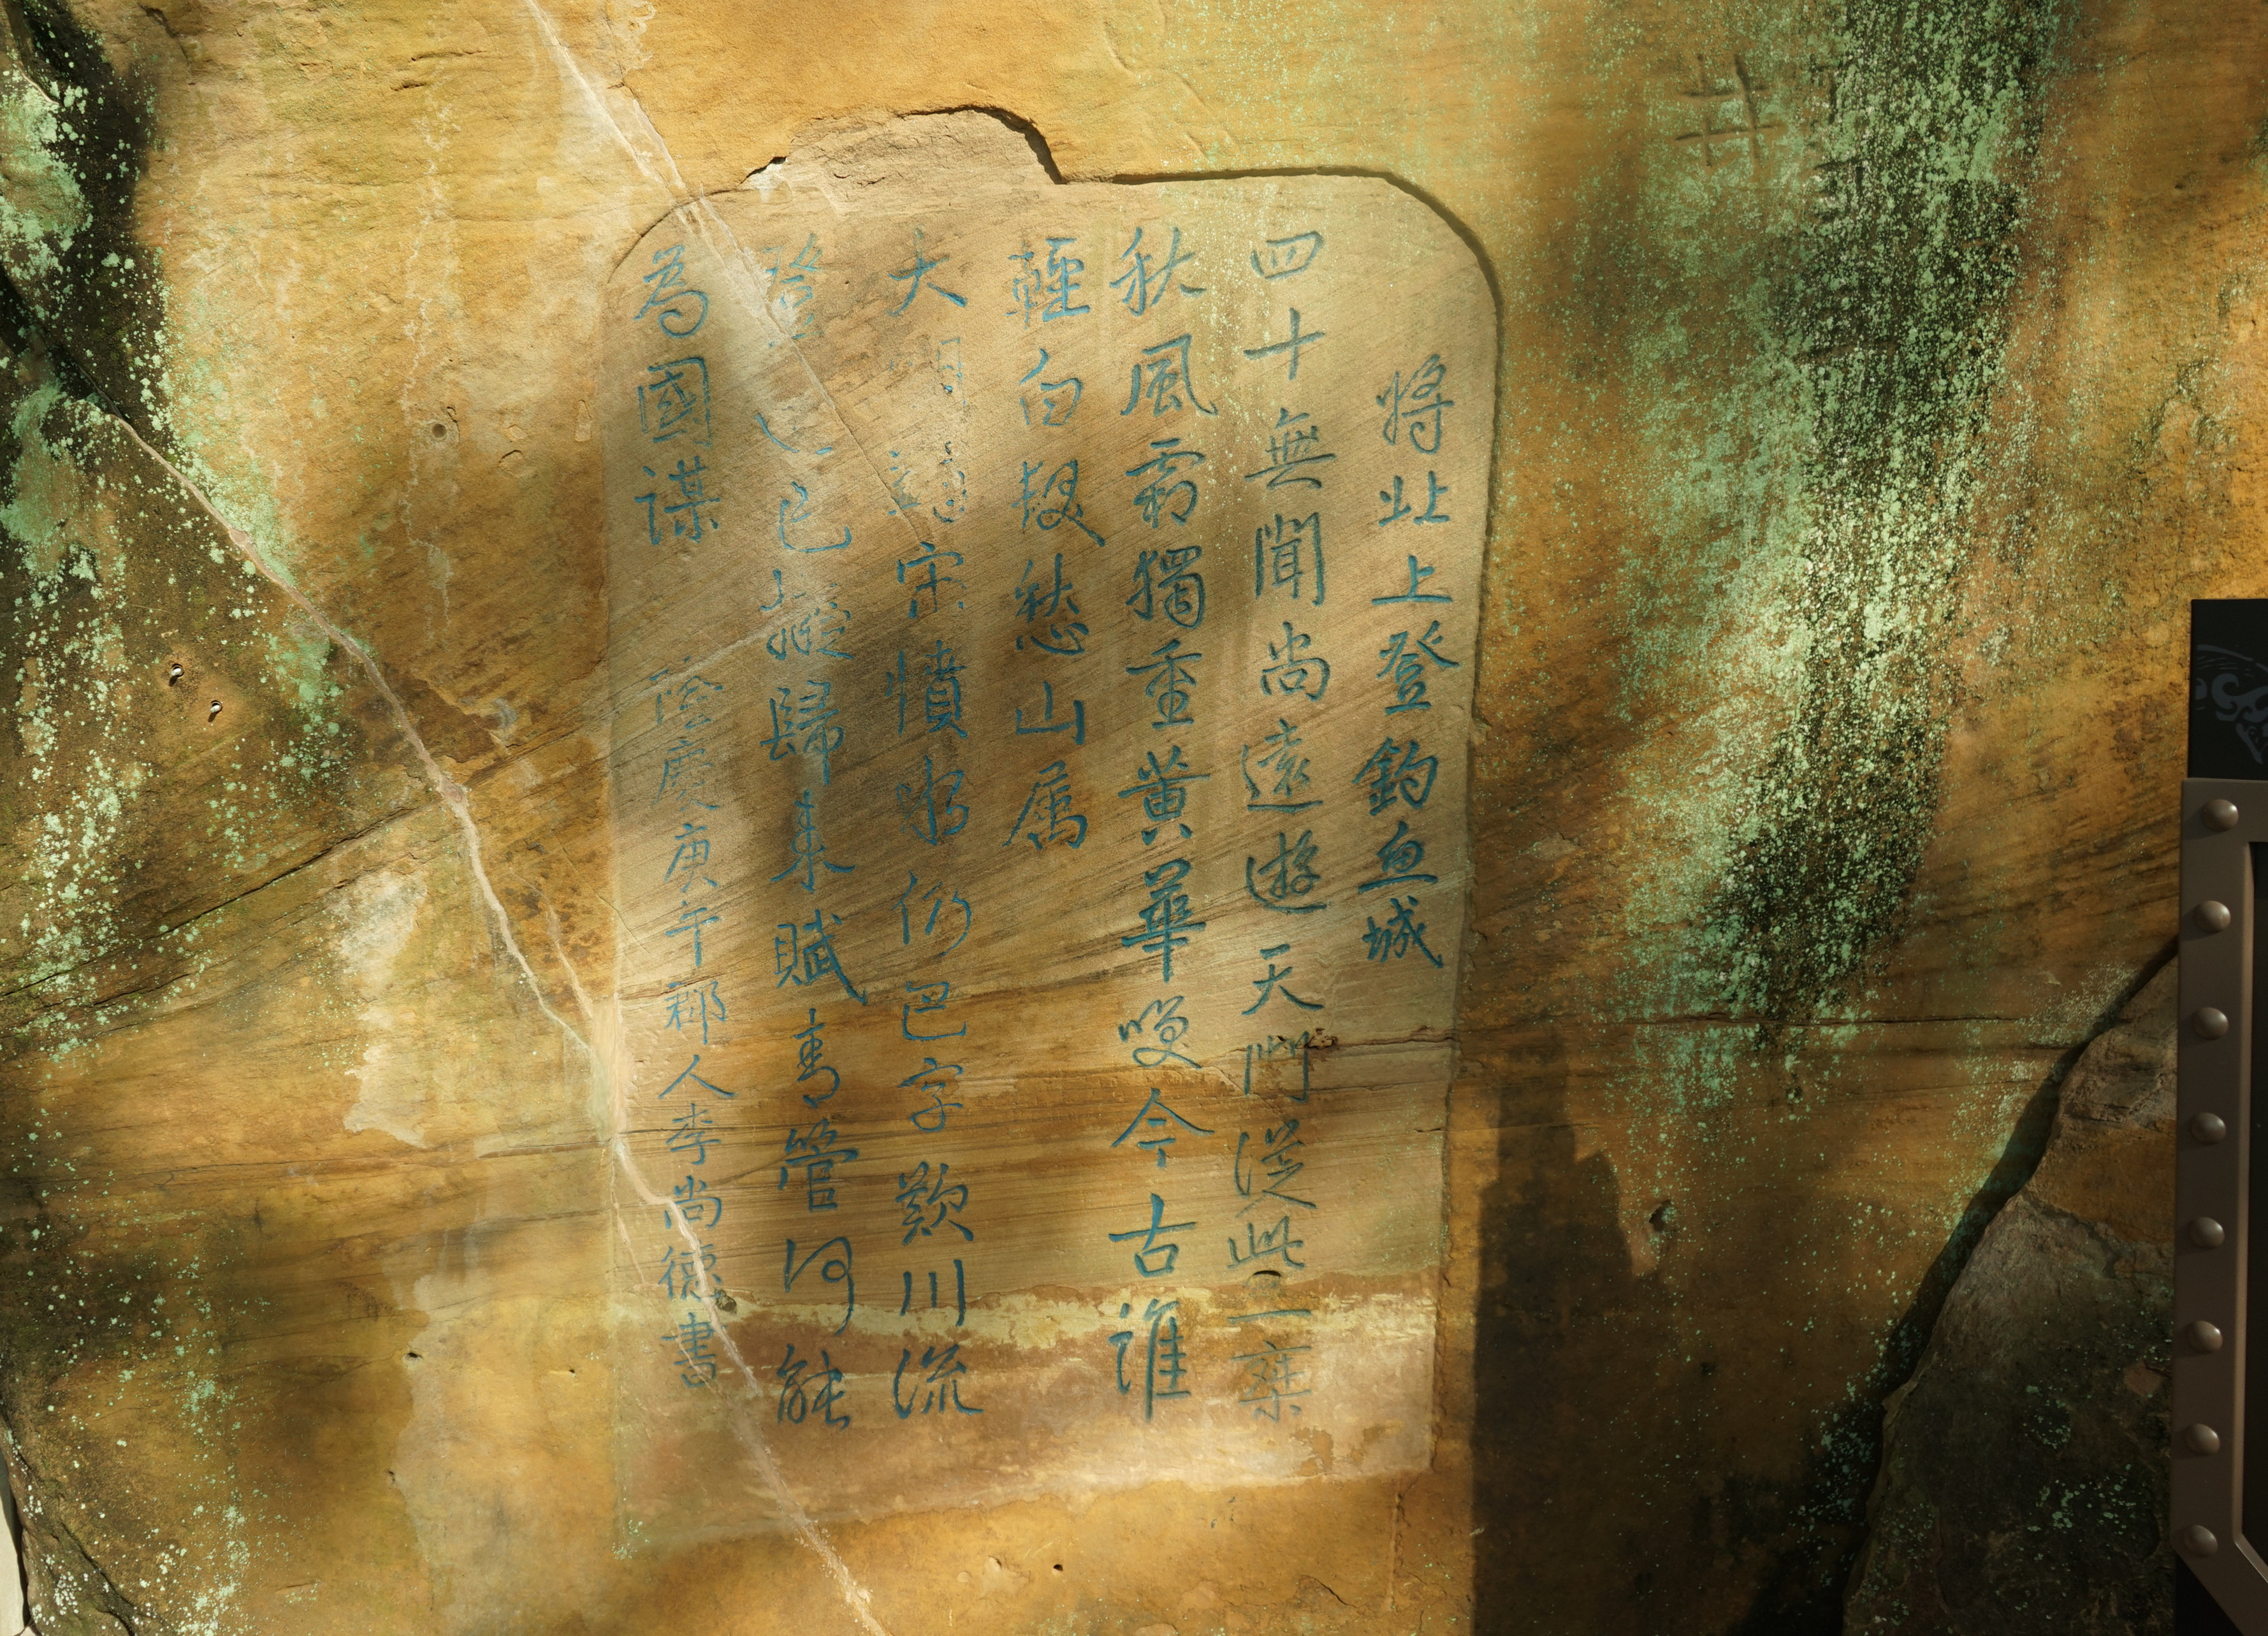 將北上登釣魚城
四十無聞尚遠遊天門從此一乘
秋風霜獨重黃華嘆今古誰
輕白髮愁山属
大明宋憤水仍巴字歎川流
登已擬歸來賦青管何能
為國謀
隆慶庚午鄉人李尚德書